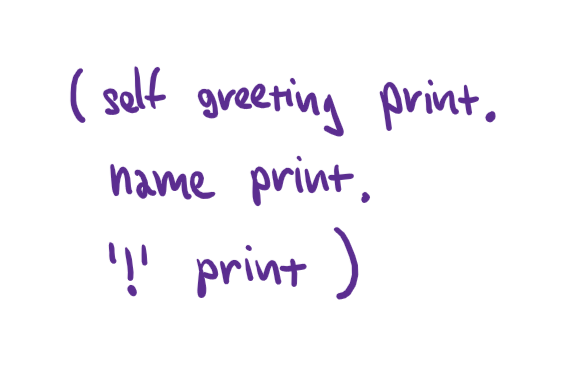 (self greeting print.
name print.
'!' print)